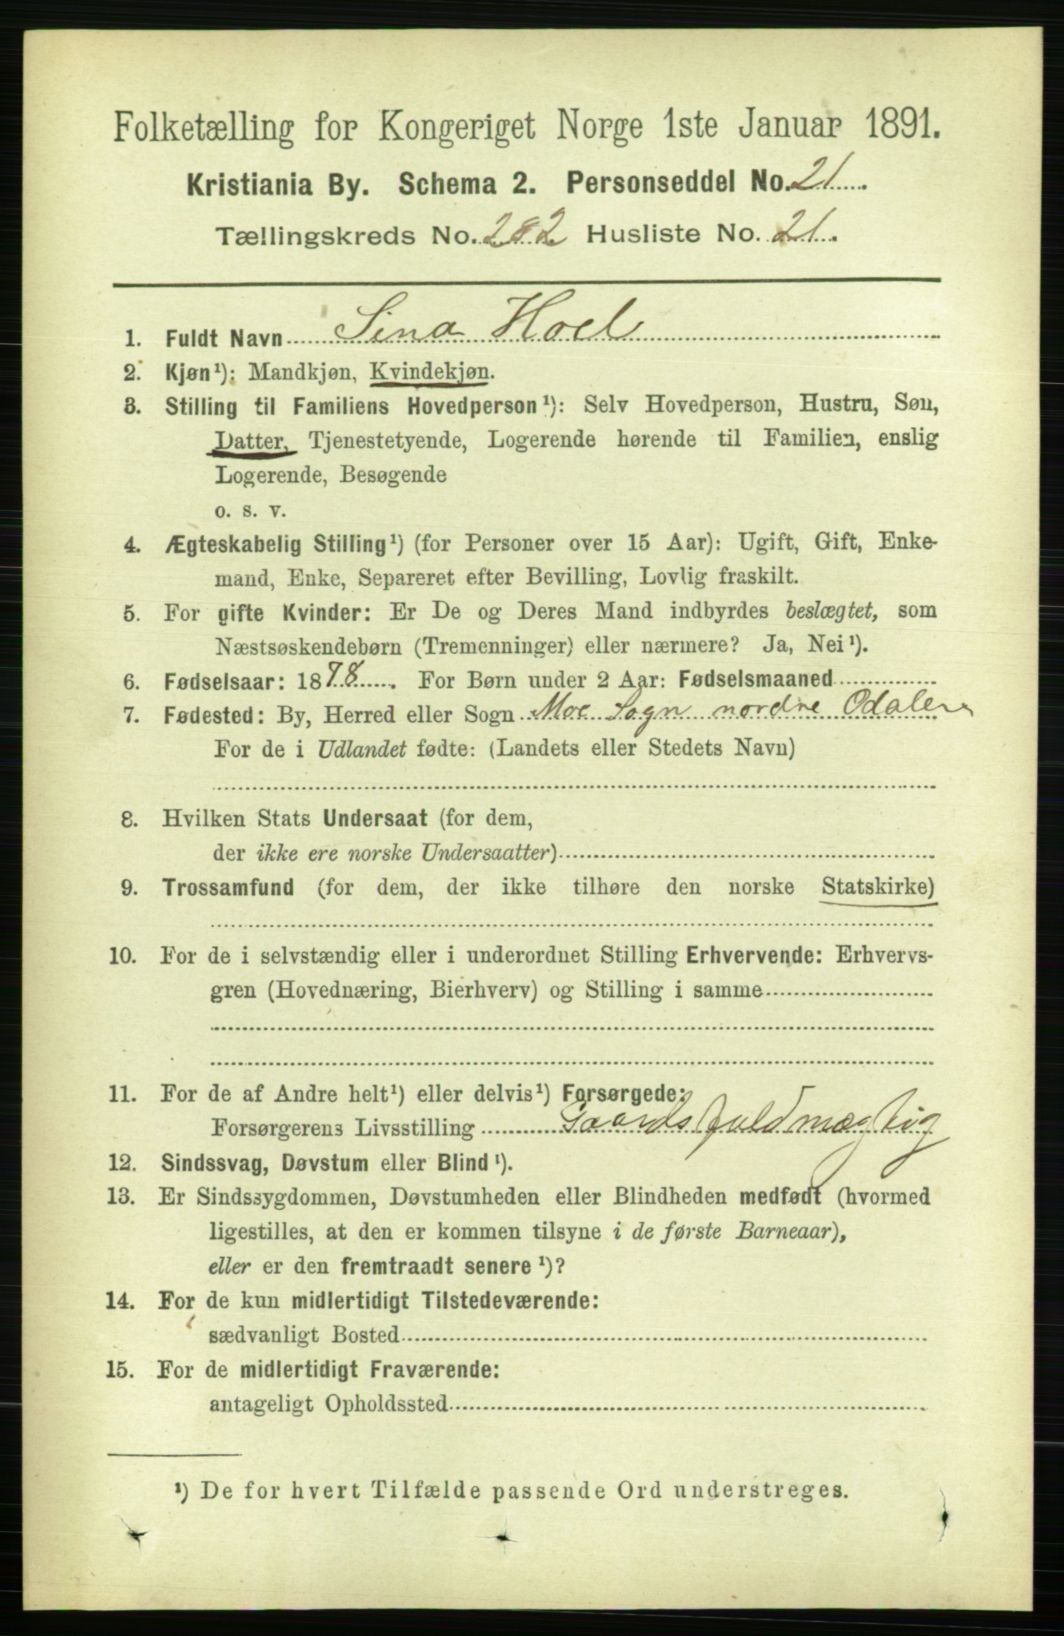 Folketælling for Kongeriget Norge 1ste Januar 1891.
Kristiania By. Schema 2. Personseddel No. 21.
Tællingskreds No. 282 Husliste No. 21.
1. Fuldt Navn Sina Hoel
2. Kjøn¹): Mandkjøn, Kvindekjøn.
3. Stilling til Familiens Hovedperson¹): Selv Hovedperson, Hustru, Søn,
Datter, Tjenestetyende, Logerende hørende til Familien, enslig
Logerende, Besøgende
o. s. v.
4. Ægteskabelig Stilling¹) (for Personer over 15 Aar): Ugift, Gift, Enke-
mand, Enke, Separeret efter Bevilling, Lovlig fraskilt.
5. For gifte Kvinder: Er De og Deres Mand indbyrdes beslægtet, som
Næstsøskendebørn (Tremenninger) eller nærmere? Ja, Nei¹).
6. Fødselsaar: 1878. For Børn under 2 Aar: Fødselsmaaned
7. Fødested: By, Herred eller Sogn Moe Sogn nordre Odalen
For de i Udlandet fødte: (Landets eller Stedets Navn)
8. Hvilken Stats Undersaat (for dem,
der ikke ere norske Undersaatter)
9. Trossamfund (for dem, der ikke tilhøre den norske Statskirke)
10. For de i selvstændig eller i underordnet Stilling Erhvervende: Erhvervs-
gren (Hovednæring, Bierhverv) og Stilling i samme
11. For de af Andre helt¹) eller delvis¹) Forsørgede:
Forsørgerens Livsstilling Gaardsfuldmægtig
12. Sindssvag, Døvstum eller Blind¹).
13. Er Sindssygdommen, Døvstumheden eller Blindheden medfødt (hvormed
ligestilles, at den er kommen tilsyne i de første Barneaar),
eller er den fremtraadt senere¹)?
14. For de kun midlertidigt Tilstedeværende:
sædvanligt Bosted
15. For de midlertidigt Fraværende:
antageligt Opholdssted
¹) De for hvert Tilfælde passende Ord understreges.